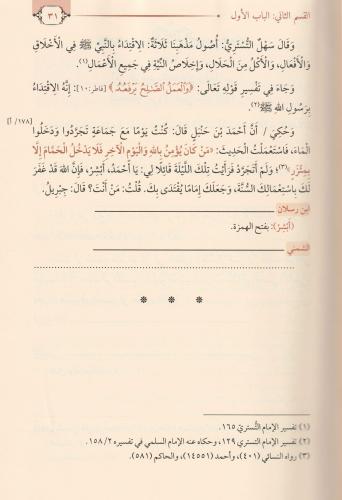 القسم الثاني: الباب الأول
٣١
وَقَالَ سَهْلٌ التُّسْتَرِيُّ: أُصُولُ مَذْهَبِنَا ثَلَاثَةٌ: الِاقْتِدَاءُ بِالنَّبِيِّ ﷺ فِي الْأَخْلَاقِ
وَالْأَفْعَالِ، وَالْأَكْلُ مِنَ الْحَلَالِ، وَإِخْلَاصُ النِّيَّةِ فِي جَمِيعِ الْأَعْمَالِ(١).
وَجَاءَ فِي تَفْسِيرِ قَوْلِهِ تَعَالَى: ﴿وَالْعَمَلُ الصَّالِحُ يَرْفَعُهُ﴾ [فاطر: ١٠]: إِنَّهُ الِاقْتِدَاءُ
بِرَسُولِ اللهِ ﷺ(٢).
وَحُكِيَ / أَنَّ أَحْمَدَ بْنَ حَنْبَلٍ قَالَ: كُنْتُ يَوْمًا مَعَ جَمَاعَةٍ تَجَرَّدُوا وَدَخَلُوا
[١٧٨/ أ]
الْمَاءَ، فَاسْتَعْمَلْتُ الْحَدِيثَ: «مَنْ كَانَ يُؤْمِنُ بِاللهِ وَالْيَوْمِ الْآخِرِ فَلَا يَدْخُلِ الْحَمَّامَ إِلَّا
بِمِئْزَرٍ»(٣)؛ وَلَمْ أَتَجَرَّدْ فَرَأَيْتُ تِلْكَ اللَّيْلَةَ قَائِلًا لِي: يَا أَحْمَدُ، أَبْشِرْ، فَإِنَّ اللهَ قَدْ غَفَرَ
لَكَ بِاسْتِعْمَالِكَ السُّنَّةَ، وَجَعَلَكَ إِمَامًا يُقْتَدَى بِكَ. قُلْتُ: مَنْ أَنْتَ؟ قَالَ: جِبْرِيلُ.
ابن رسلان
(أَبْشِرْ): بفتح الهمزة.
الشمني
* * *
(١) تفسير الإمام التُّستري ١٦٥.
(٢) تفسير الإمام التستري ١٢٩، وحكاه عنه الإمام السلمي في تفسيره ٢/ ١٥٨.
(٣) رواه النسائي (٤٠١)، وأحمد (١٤٦٥١)، والحاكم (٥٨١).